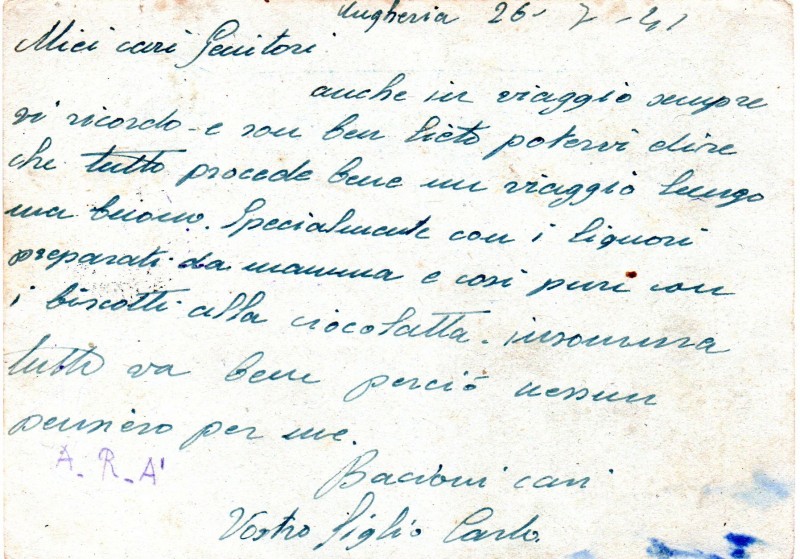 Ungheria 26-7-41
Miei cari Genitori
anche in viaggio sempre
vi ricordo - e son ben lieto potervi dire
che tutto procede bene un viaggio lungo
ma buono. Specialmente con i liquori
preparati da mamma e cosi pure con
i biscotti alla ciocolatta. insomma
tutto va bene perciò nessun
pensiero per me.
A_R_A'
Bacioni cari
Vostro figlio Carlo.